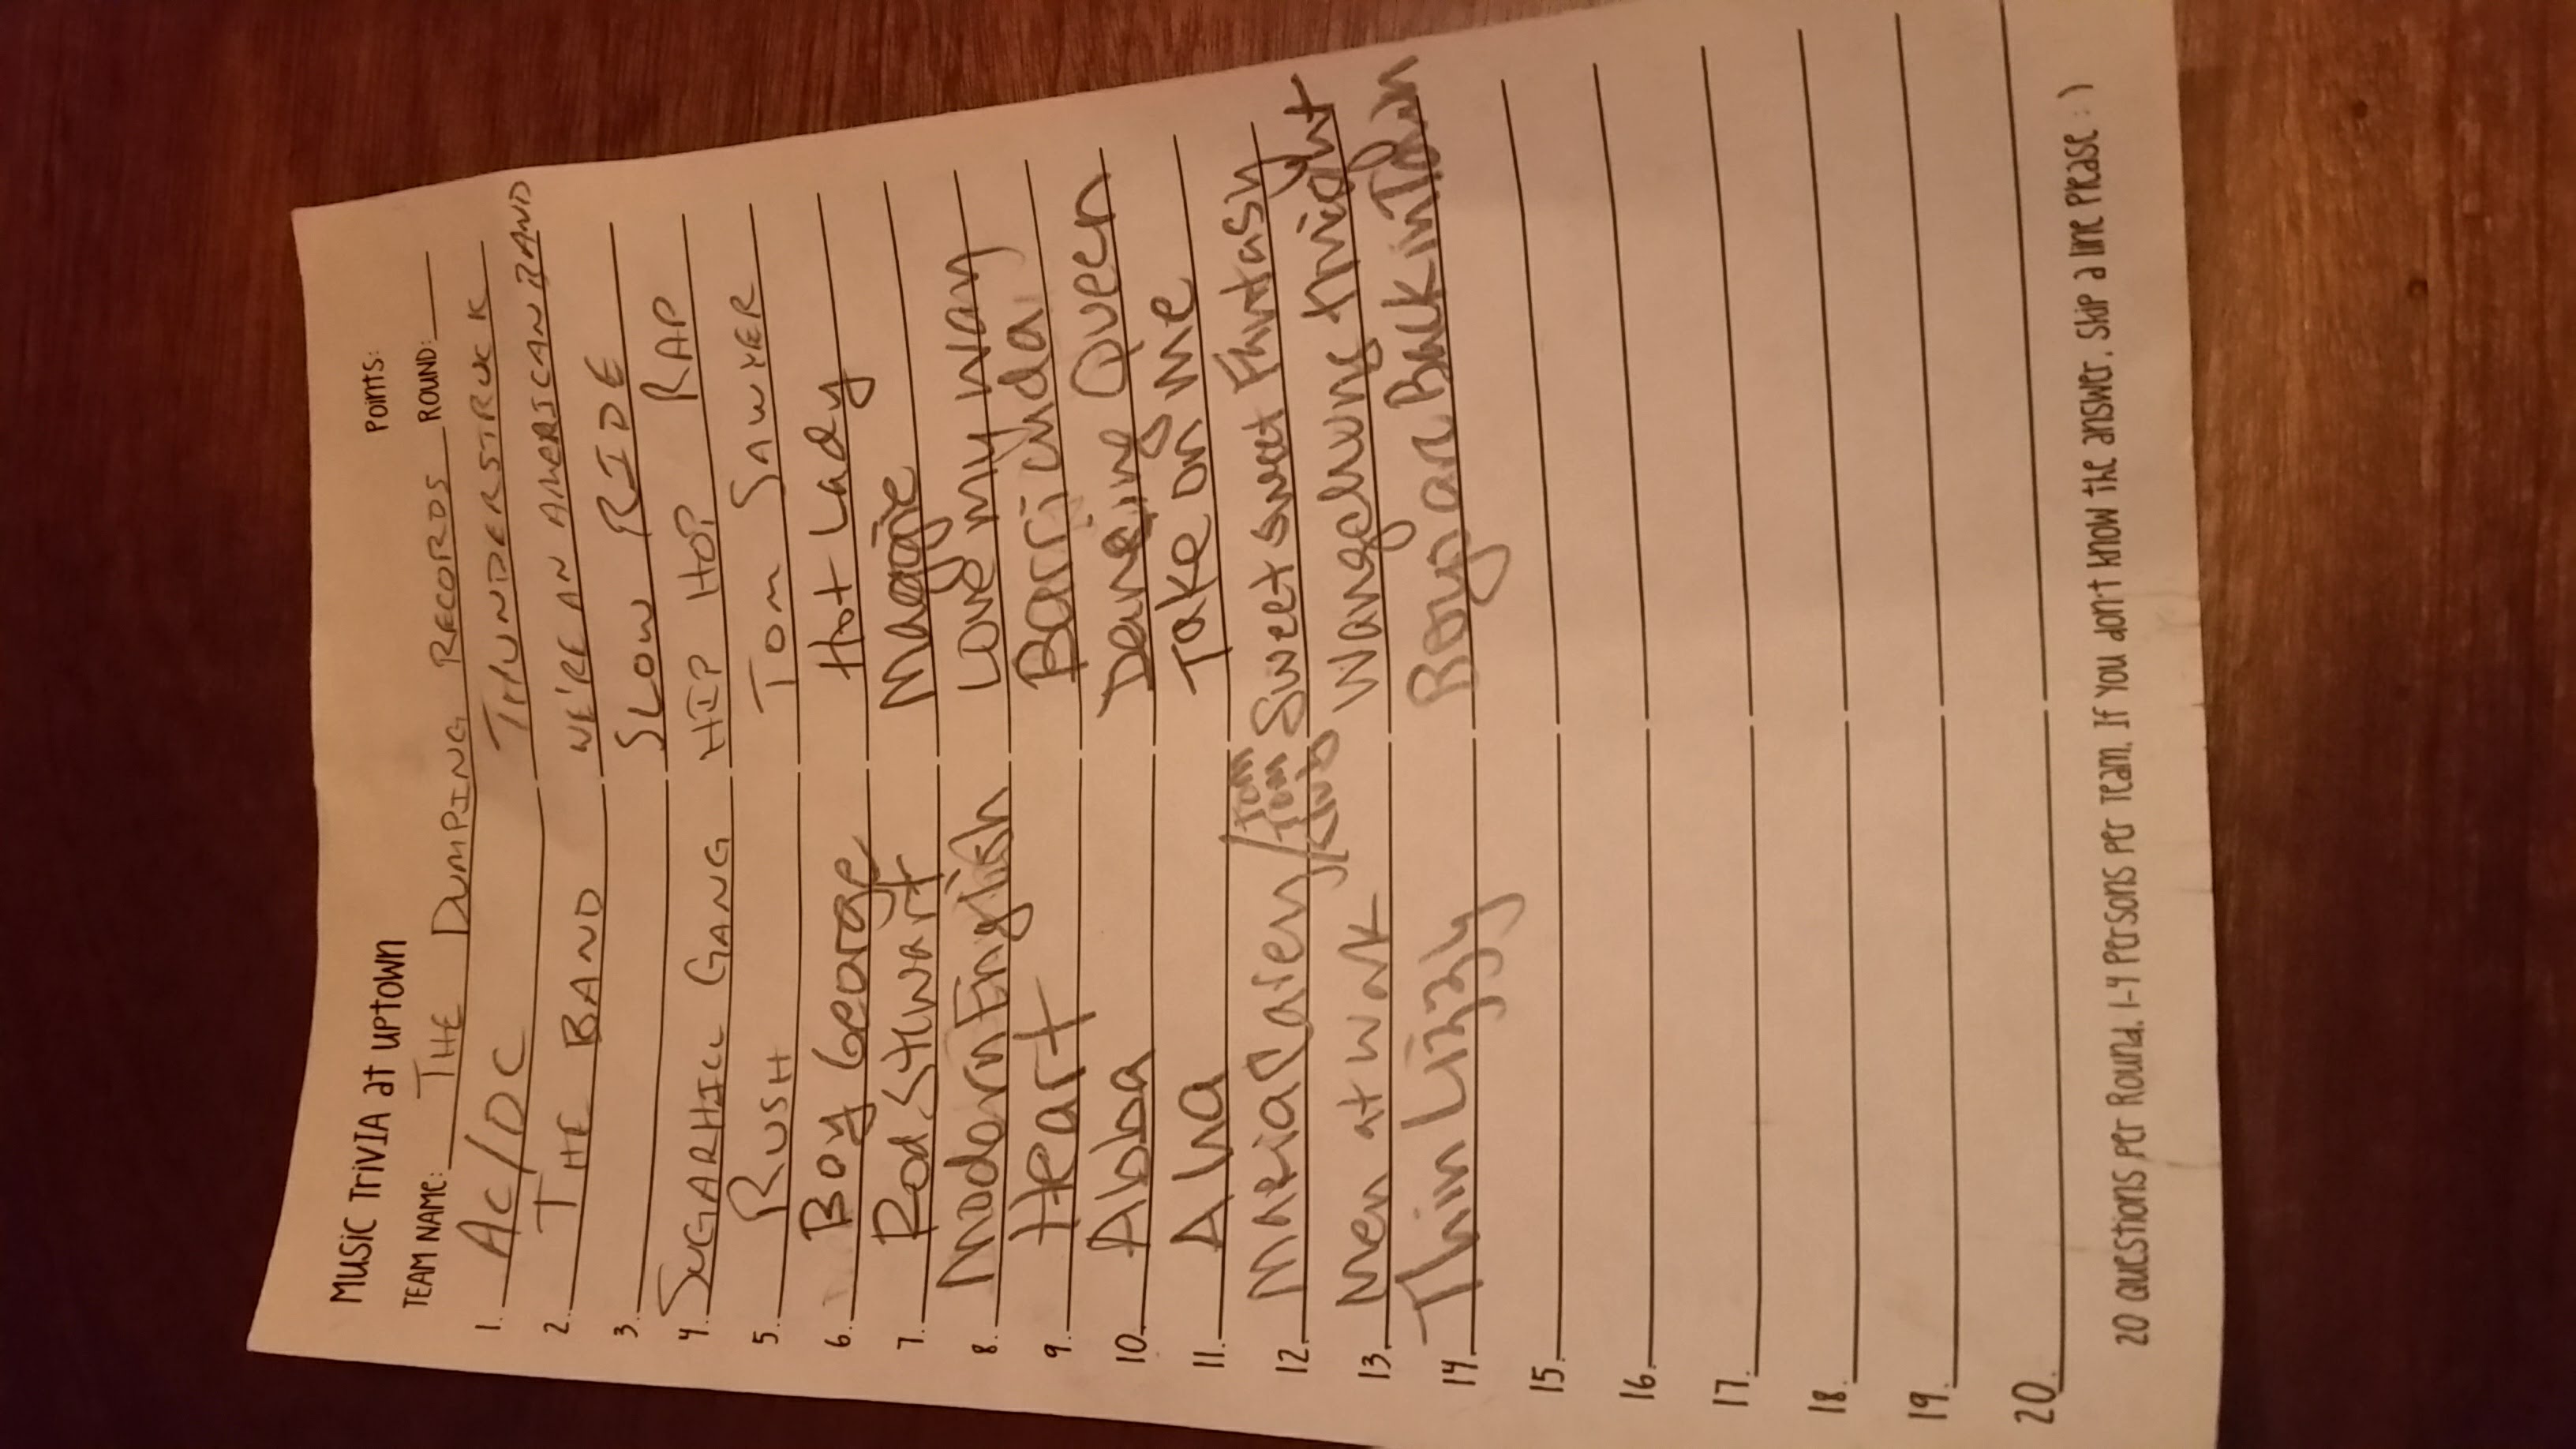 MUSIC TRIVIA at UPTOWN
POINTS:
TEAM NAME: THE DUMPING RECORDS ROUND:
1. AC/DC THUNDERSTRUCK
2. THE BAND WE'RE AN AMERICAN BAND
3. SLOW RIDE
4. SUGARHILL GANG HIP HOP RAP
5. RUSH TOM SAWYER
6. Boy George Hot Lady
7. Rod Stewart Maggie
8. Modern English Love my way
9. Heart Barricuda
10. Abba Dancing Queen
11. Aha Take on me
12. Maria Carey/Tom Tom Club Sweet sweet Fantasy
13. Men at Work Wangchung tnight
14. Thin Lizzy Boys are Back in Town
15.
16.
17.
18.
19.
20.
20 Questions per Round. 1-4 Persons per Team. If you don't know the answer, skip a line please :)